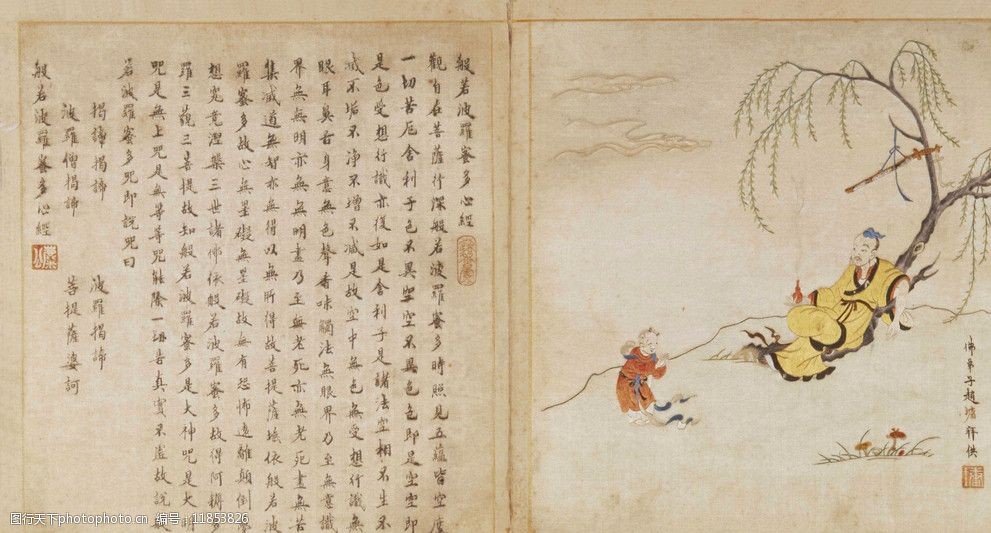 佛弟子趙
般若波羅蜜多心經
觀自在菩薩行深般若波羅蜜多時照見五蘊皆空度
一切苦厄舍利子色不異空空不異色色即是空空即
是色受想行識亦復如是舍利子是諸法空相不生不
滅不垢不淨不增不減是故空中無色無受想行識無
眼耳鼻舌身意無色聲香味觸法無眼界乃至無意識
界無無明亦無無明盡乃至無老死亦無老死盡無苦
集滅道無智亦無得以無所得故菩提薩埵依般若波
羅蜜多故心無罣礙無罣礙故無有恐怖遠離顛倒
想究竟涅槃三世諸佛依般若波羅蜜多故得阿耨多
羅三藐三菩提故知般若波羅蜜多是大神咒是大明
咒是無上咒是無等等咒能除一切苦真實不虛故說
若波羅蜜多咒即說咒曰
揭諦揭諦 波羅揭諦
波羅僧揭諦 菩提薩婆訶
般若波羅蜜多心經
图行天下photophoto.cn 编号:11853826